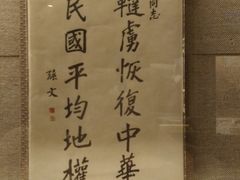 同志
韃虜恢復中華
民國平均地權
孫文